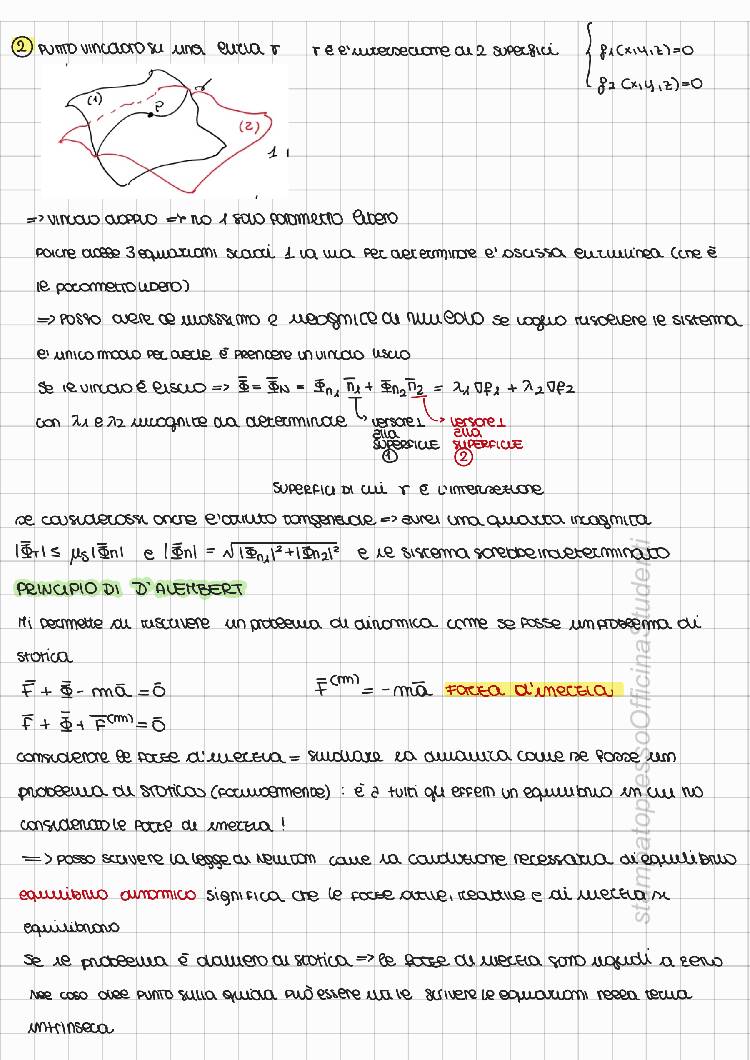 ② PUNTO VINCOLATO SU UNA CURVA r r è l'intersezione di 2 superfici { f1(x,y,z)=0
f2(x,y,z)=0
(1) P r (2)
1
=> VINCOLO DOPPIO => ho 1 solo parametro libero
Poiché delle 3 equazioni scalari 1 la usa per determinare l'ascissa curvilinea (che è
il parametro libero)
=> Posso avere al massimo 2 incognite di vincolo se voglio risolvere il sistema
l'unico modo per averle è prendere un vincolo liscio
Se il vincolo è liscio => Φ̄ = Φ̄N = Φn1 n̄1 + Φn2 n̄2 = λ1 ∇f1 + λ2 ∇f2
con λ1 e λ2 incognite da determinare versore ⊥ alla SUPERFICIE ① versore ⊥ alla SUPERFICIE ②
SUPERFICI DI CUI r È L'INTERSEZIONE
se considerassi anche l'attrito tangenziale => avrei una quarta incognita
|Φ̄T| ≤ μs|Φ̄n| e |Φ̄n| = √|Φn1|²+|Φn2|² e il sistema sarebbe indeterminato
PRINCIPIO DI D'ALEMBERT
Mi permette di riscrivere un problema di dinamica come se fosse un problema di
statica
F̄ + Φ̄ - mā = ō F̄(m) = -mā FORZA d'inerzia
F̄ + Φ̄ + F̄(m) = ō
considerare le forze d'inerzia = studiare la dinamica come se fosse un
problema di statica (formalmente) : è a tutti gli effetti un equilibrio in cui ho
considerato le forze di inerzia !
=> posso scrivere la legge di Newton come la condizione necessaria di equilibrio
equilibrio dinamico significa che le forze attive, reattive e di inerzia si
equilibrano
Se il problema è davvero di statica => le forze di inerzia sono uguali a zero
Nel caso del punto sulla guida può essere utile scrivere le equazioni nella terna
intrinseca
stampatopressoOfficinaStudenti